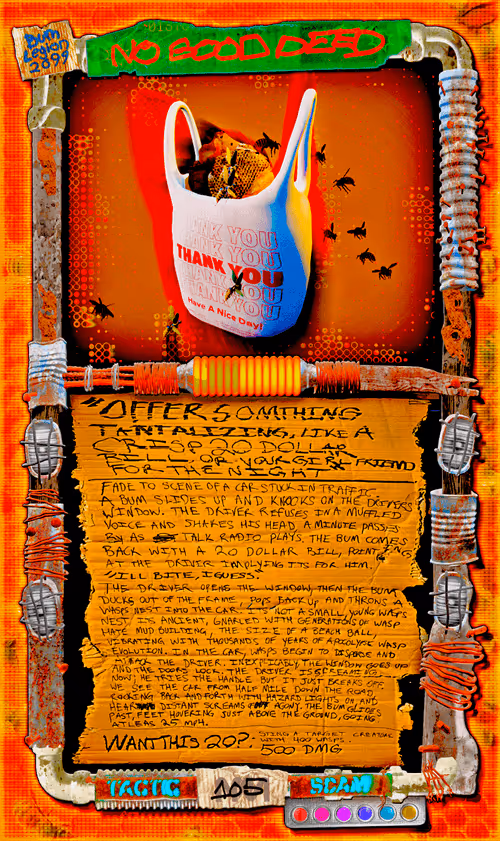 Bum
Legion
2099
NO GOOD DEED
THANK YOU
Have A Nice Day!
"OFFER SOMTHING
TANTALIZING, LIKE A
CRISP 20 DOLLAR
BILL, OR YOUR GIRLFRIEND
FOR THE NIGHT
FADE TO SCENE OF A CAR STUCK IN TRAFFIC.
A BUM SLIDES UP AND KNOCKS ON THE DRIVERS
WINDOW. THE DRIVER REFUSES IN A MUFFLED
VOICE AND SHAKES HIS HEAD. A MINUTE PASSES
BY AS TALK RADIO PLAYS. THE BUM COMES
BACK WITH A 20 DOLLAR BILL, POINTING
AT THE DRIVER IMPLYING ITS FOR HIM.
"ILL BITE, I GUESS."
THE DRIVER OPENS THE WINDOW, THEN THE BUM
DUCKS OUT OF THE FRAME, POPS BACK UP AND THROWS A
WASPS NEST INTO THE CAR. ITS NOT A SMALL, YOUNG WASPS
NEST. ITS ANCIENT, GNARLED WITH GENERATIONS OF WASP
HATE MUD BUILDING, THE SIZE OF A BEACH BALL,
VIBRATING WITH THOUSANDS OF YEARS OF APIOLYC WASP
EVOLUTION. IN THE CAR, WASPS BEGIN TO DISPERSE AND
ATTACK THE DRIVER. INEXPLICABLY, THE WINDOW GOES UP
AND THE DOORS LOCK. THE DRIVER IS SCREAMING
NOW; HE TRIES THE HANDLE BUT IT JUST BREAKS OFF.
WE SEE THE CAR FROM HALF MILE DOWN THE ROAD,
ROCKING BACK AND FORTH WITH HAZARD LIGHTS ON AND
HEAR DISTANT SCREAMS OF AGONY. THE BUM SLIDES
PAST, FEET HOVERING JUST ABOVE THE GROUND, GOING
ATLEAS 25 MPH.
WANT THIS 20?. STING A TARGET CREATURE
WITH 400 WASPS.
500 DMG
TACTIC 105 SCAM